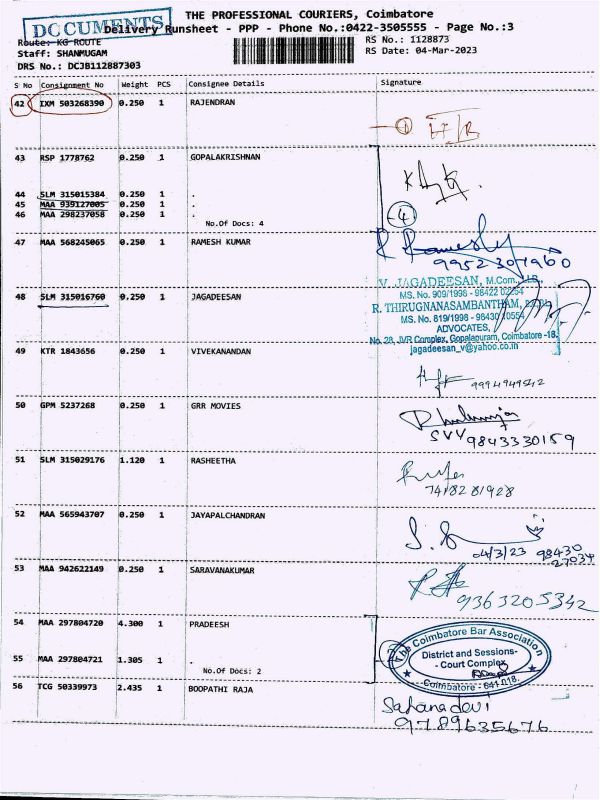 DOCUMENTS
THE PROFESSIONAL COURIERS, Coimbatore
Delivery Runsheet - PPP - Phone No.:0422-3505555 - Page No.:3
Route: KG ROUTE
RS No.: 1128873
Staff: SHANMUGAM
RS Date: 04-Mar-2023
DRS No.: DCJB112887303
S No Consignment No Weight PCS Consignee Details Signature
42 IXM 503268390 0.250 1 RAJENDRAN
43 RSP 1778762 0.250 1 GOPALAKRISHNAN
44 SLM 315015384 0.250 1 .
45 MAA 939127005 0.250 1 .
46 MAA 298237058 0.250 1 .
No.Of Docs: 4
4
47 MAA 568245065 0.250 1 RAMESH KUMAR
9952301960
48 SLM 315016760 0.250 1 JAGADEESAN
V. JAGADEESAN, M.Com.,
MS. No. 909/1998 - 98422
R. THIRUGNANASAMBANTHAM,
MS. No. 819/1998 - 98430
ADVOCATES,
No. 28, JVR Complex, Gopalapuram, Coimbatore -18.
jagadeesan_v@yahoo.co.in
49 KTR 1843656 0.250 1 VIVEKANANDAN
50 GPM 5237268 0.250 1 GRR MOVIES
SVV 9843330159
51 SLM 315029176 1.120 1 RASHEETHA
7418281928
52 MAA 565943707 0.250 1 JAYAPALCHANDRAN
04/3/23 98430
27034
53 MAA 942622149 0.250 1 SARAVANAKUMAR
9363205342
54 MAA 297804720 4.300 1 PRADEESH
55 MAA 297804721 1.305 1 .
No.Of Docs: 2
The Coimbatore Bar Association
District and Sessions-
-Court Complex
Coimbatore - 641 018.
56 TCG 50339973 2.435 1 BOOPATHI RAJA
Sahanadevi
9789635676